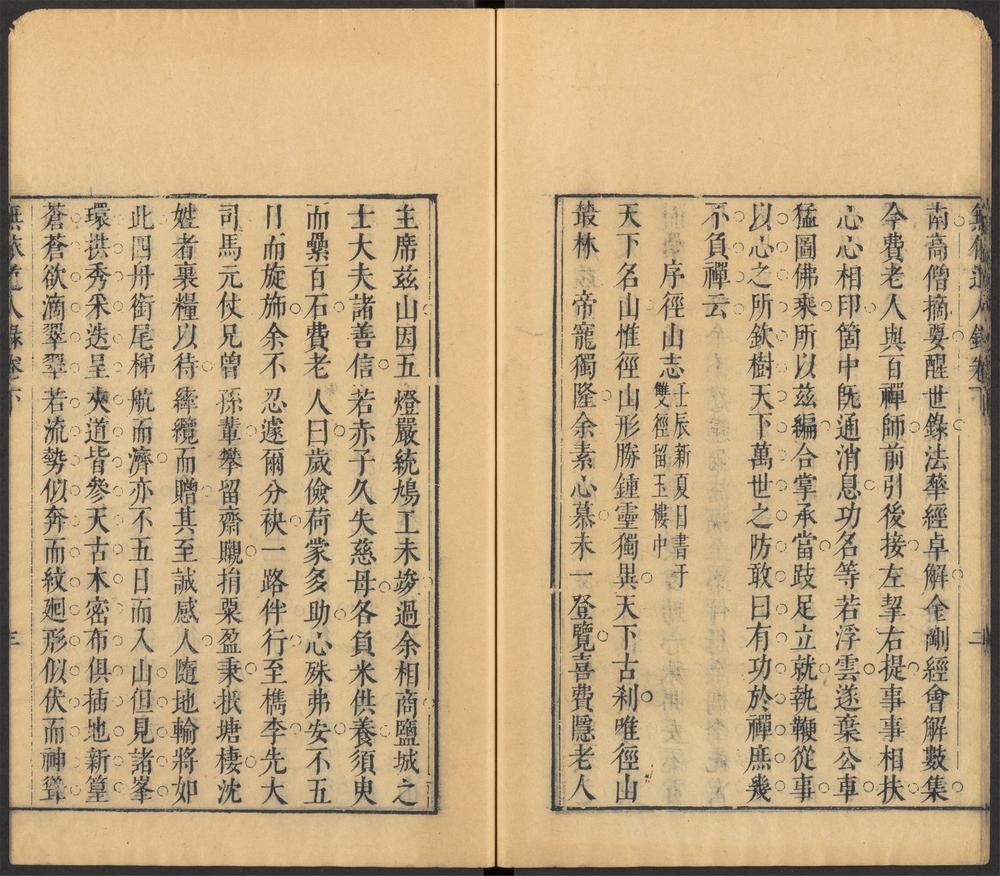 無依道人錄卷下 二
南高僧摘要醒世錄法華經卓解金剛經會解數集
今費老人與百禪師前引後接左挈右提事事相扶
心心相印箇中既通消息功名等若浮雲遂棄公車
猛圖佛乘所以茲編合掌承當跂足立就執鞭從事
以心之所欽樹天下萬世之防敢曰有功於禪庶幾
不負禪云
序徑山志 壬辰新夏日書于
雙徑留玉樓中
天下名山惟徑山形勝鍾靈獨異天下古刹唯徑山
叢林 帝寵獨隆余素心慕未一登覽喜費隱老人
主席茲山因五燈嚴統鳩工未竣過余相商鹽城之
士大夫諸善信若赤子久失慈母各負米供養須臾
而纍百石費老人曰歲儉荷蒙多助心殊弗安不五
日而旋斾余不忍遽爾分袂一路伴行至檇李先大
司馬元仗兄曾孫輩攀留齋䞋捐粟盈秉抵塘棲沈
姓者裹糧以待縴纜而贈其至誠感人隨地輸將如
此四舟銜尾梯航而濟亦不五日而入山但見諸峯
環拱秀采迭呈夾道皆參天古木密布俱插地新篁
蒼蒼欲滴翠翠若流勢似奔而紋廻形似伏而神聳
無依道人錄卷下 三